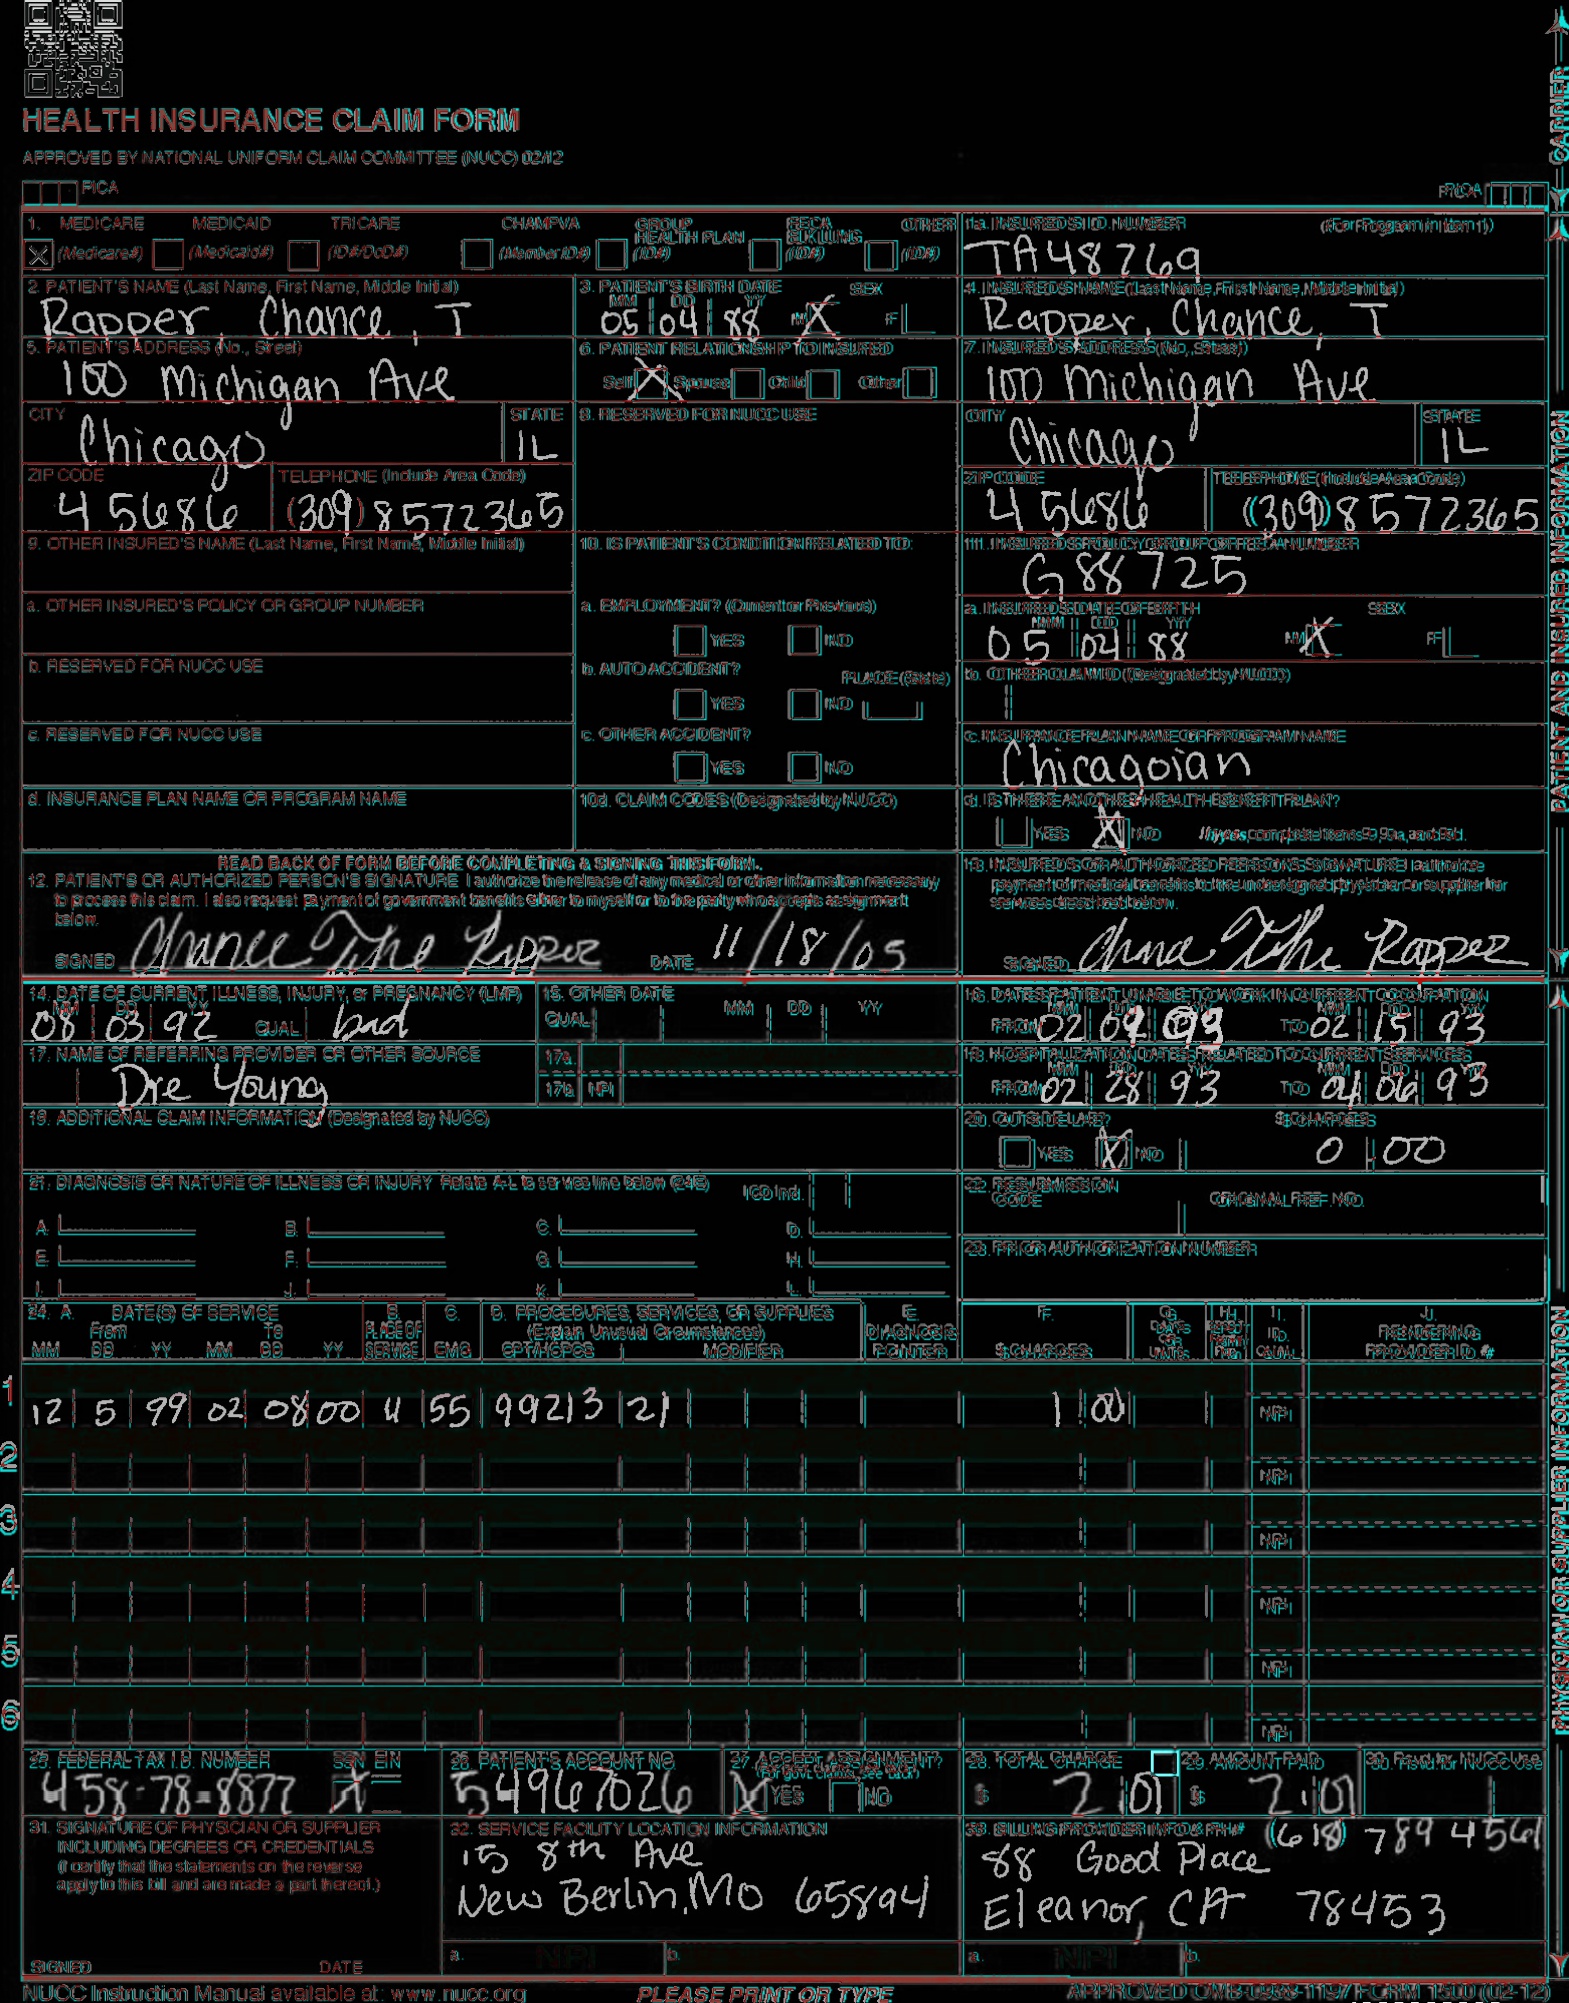 HEALTH INSURANCE CLAIM FORM
APPROVED BY NATIONAL UNIFORM CLAIM COMMITTEE (NUCC) 02/12
PICA
PICA
CARRIER
1. MEDICARE MEDICAID TRICARE CHAMPVA GROUP HEALTH PLAN FECA BLK LUNG OTHER
(Medicare#) (Medicaid#) (ID#/DoD#) (Member ID#) (ID#) (ID#) (ID#)
1a. INSURED'S I.D. NUMBER (For Program in Item 1)
TA48769
2. PATIENT'S NAME (Last Name, First Name, Middle Initial)
Rapper, Chance, T
3. PATIENT'S BIRTH DATE SEX
MM DD YY
05 04 88 M X F
4. INSURED'S NAME (Last Name, First Name, Middle Initial)
Rapper, Chance, T
5. PATIENT'S ADDRESS (No., Street)
100 Michigan Ave
6. PATIENT RELATIONSHIP TO INSURED
Self X Spouse Child Other
7. INSURED'S ADDRESS (No., Street)
100 Michigan Ave
CITY STATE
Chicago IL
8. RESERVED FOR NUCC USE
CITY STATE
Chicago IL
ZIP CODE TELEPHONE (Include Area Code)
45686 (309) 8572365
ZIP CODE TELEPHONE (Include Area Code)
45686 (309) 8572365
9. OTHER INSURED'S NAME (Last Name, First Name, Middle Initial)
10. IS PATIENT'S CONDITION RELATED TO:
11. INSURED'S POLICY GROUP OR FECA NUMBER
G88725
a. OTHER INSURED'S POLICY OR GROUP NUMBER
a. EMPLOYMENT? (Current or Previous)
YES NO
a. INSURED'S DATE OF BIRTH SEX
MM DD YY
05 04 88 M X F
b. RESERVED FOR NUCC USE
b. AUTO ACCIDENT? PLACE (State)
YES NO
b. OTHER CLAIM ID (Designated by NUCC)
c. RESERVED FOR NUCC USE
c. OTHER ACCIDENT?
YES NO
c. INSURANCE PLAN NAME OR PROGRAM NAME
Chicagoian
d. INSURANCE PLAN NAME OR PROGRAM NAME
10d. CLAIM CODES (Designated by NUCC)
d. IS THERE ANOTHER HEALTH BENEFIT PLAN?
YES X NO If yes, complete items 9, 9a, and 9d.
PATIENT AND INSURED INFORMATION
READ BACK OF FORM BEFORE COMPLETING & SIGNING THIS FORM.
12. PATIENT'S OR AUTHORIZED PERSON'S SIGNATURE I authorize the release of any medical or other information necessary
to process this claim. I also request payment of government benefits either to myself or to the party who accepts assignment
below.
SIGNED Chance The Rapper DATE 11/18/05
13. INSURED'S OR AUTHORIZED PERSON'S SIGNATURE I authorize
payment of medical benefits to the undersigned physician or supplier for
services described below.
SIGNED Chnce The Rapper
14. DATE OF CURRENT ILLNESS, INJURY, or PREGNANCY (LMP)
MM DD YY
08 03 92 QUAL. bad
15. OTHER DATE
QUAL. MM DD YY
16. DATES PATIENT UNABLE TO WORK IN CURRENT OCCUPATION
MM DD YY MM DD YY
FROM 02 09 93 TO 02 15 93
17. NAME OF REFERRING PROVIDER OR OTHER SOURCE
Dre Young
17a.
17b. NPI
18. HOSPITALIZATION DATES RELATED TO CURRENT SERVICES
MM DD YY MM DD YY
FROM 02 28 93 TO 04 06 93
19. ADDITIONAL CLAIM INFORMATION (Designated by NUCC)
20. OUTSIDE LAB? $ CHARGES
YES X NO 0 00
21. DIAGNOSIS OR NATURE OF ILLNESS OR INJURY Relate A-L to service line below (24E) ICD Ind.
A. B. C. D.
E. F. G. H.
I. J. K. L.
22. RESUBMISSION CODE ORIGINAL REF. NO.
23. PRIOR AUTHORIZATION NUMBER
24. A. DATE(S) OF SERVICE
From To
MM DD YY MM DD YY
B. PLACE OF SERVICE
C. EMG
D. PROCEDURES, SERVICES, OR SUPPLIES
(Explain Unusual Circumstances)
CPT/HCPCS MODIFIER
E. DIAGNOSIS POINTER
F. $ CHARGES
G. DAYS OR UNITS
H. EPSDT Family Plan
I. ID. QUAL.
J. RENDERING PROVIDER ID. #
1
12 5 99 02 08 00 4 55 99213 21 1 00 NPI
2 NPI
3 NPI
4 NPI
5 NPI
6 NPI
PHYSICIAN OR SUPPLIER INFORMATION
25. FEDERAL TAX I.D. NUMBER SSN EIN
458-78-8877 X
26. PATIENT'S ACCOUNT NO.
54967026
27. ACCEPT ASSIGNMENT?
(For govt. claims, see back)
X YES NO
28. TOTAL CHARGE
$ 2 01
29. AMOUNT PAID
$ 2 01
30. Rsvd for NUCC Use
31. SIGNATURE OF PHYSICIAN OR SUPPLIER
INCLUDING DEGREES OR CREDENTIALS
(I certify that the statements on the reverse
apply to this bill and are made a part thereof.)
SIGNED DATE
32. SERVICE FACILITY LOCATION INFORMATION
15 8th Ave
New Berlin, Mo 65894
a. NPI b.
33. BILLING PROVIDER INFO & PH# (618) 789 4561
88 Good Place
Eleanor, CA 78453
a. NPI b.
NUCC Instruction Manual available at: www.nucc.org
PLEASE PRINT OR TYPE
APPROVED OMB-0938-1197 FORM 1500 (02-12)